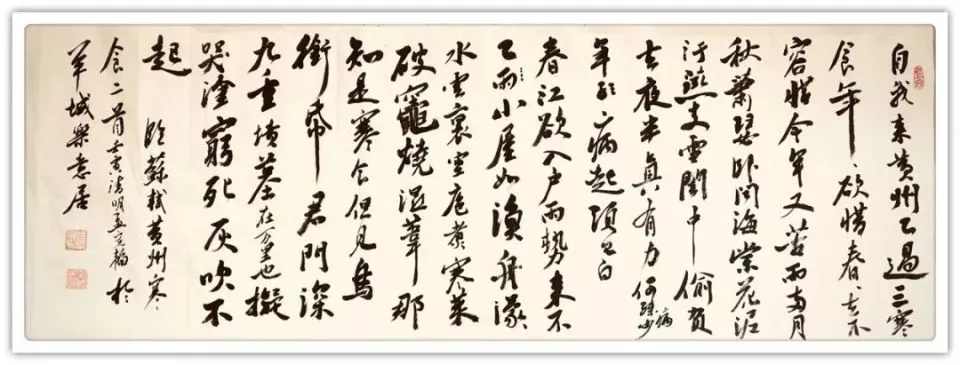 自我来黄州已過三寒
食年、欲惜春、去不
容惜今年又苦雨兩月
秋蕭瑟卧聞海棠花泥
汙燕支雪闇中偷負
去夜半真有力何殊病少
年子病起頭已白
春江欲入户雨勢来不
已雨小屋如漁舟濛
水雲裏空庖煮寒菜
破竈燒濕葦那
知是寒食但見烏
銜帋君門深
九重墳墓在万里也擬
哭塗窮死灰吹不
起 臨蘇軾黄州寒
食二首壬寅清明於
羊城樂意居